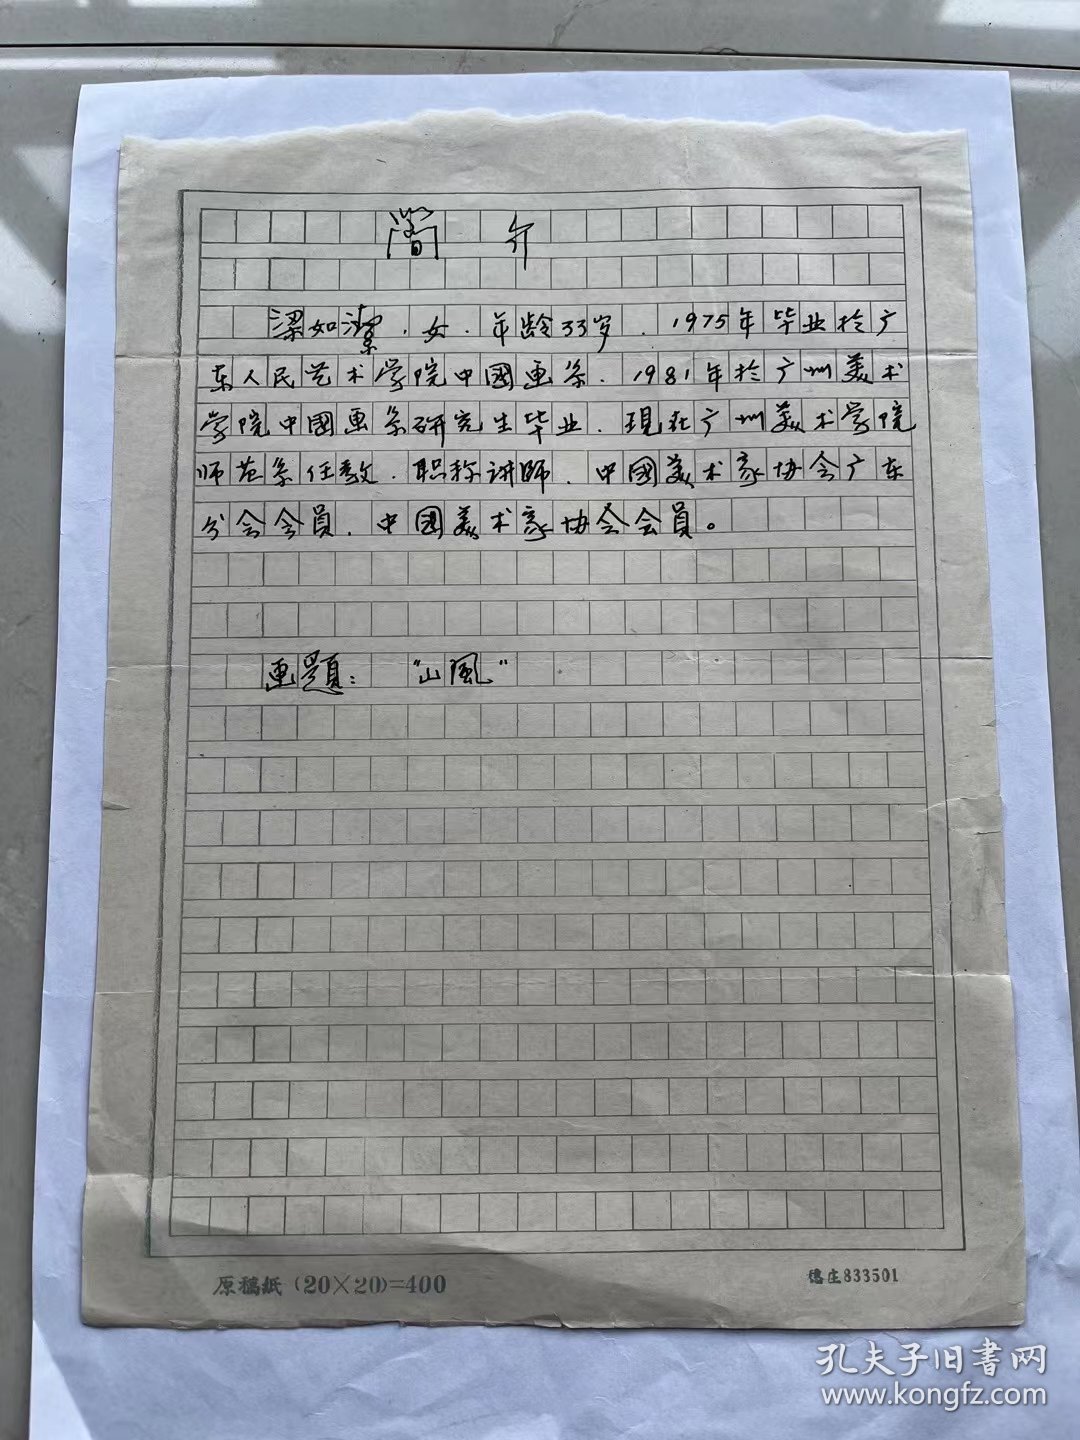 简 介
梁如潔，女，年龄33岁，1975年毕业於广
东人民艺术学院中國画系，1981年於广州美术
学院中國画系研究生毕业，现在广州美术学院
师范系任教，职称讲师，中國美术家协会广东
分会会員，中國美术家协会会員。
画題："山風"
原稿紙（20×20）=400
德庄833501
孔夫子旧書网
www.kongfz.com